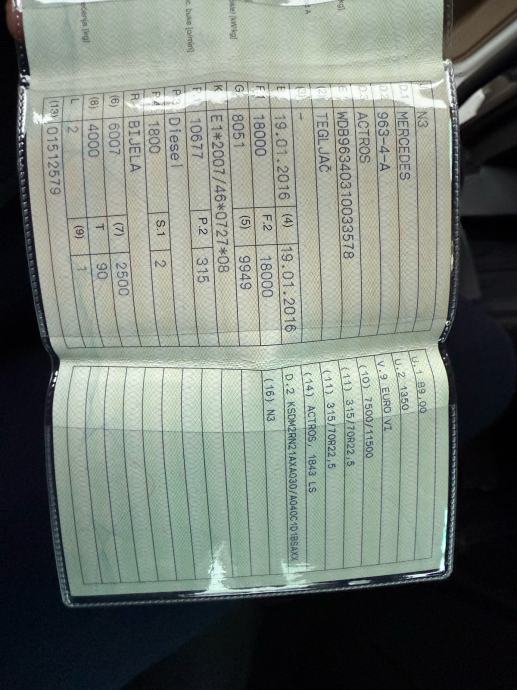 J N3
D.1 MERCEDES
D. 963-4-A
D.3 ACTROS
E WDB96340310033578
(2) TEGLJAČ
(3) -
B 19.01.2016 (4) 19.01.2016
F.1 18000 F.2 18000
G 8051 (5) 9949
K E1*2007/46*0727*08
P.1 10677 P.2 315
P.3 Diesel
P.4 1800 S.1 2
R BIJELA
(6) 6007 (7) 2500
(8) 4000 T 90
L 2 (9) 1
(13) 01512579
U.1 89,00
U.2 1350
V.9 EURO VI
(10) 7500/11500
(11) 315/70R22,5
(11) 315/70R22,5
(14) ACTROS, 1843 LS
(16) N3